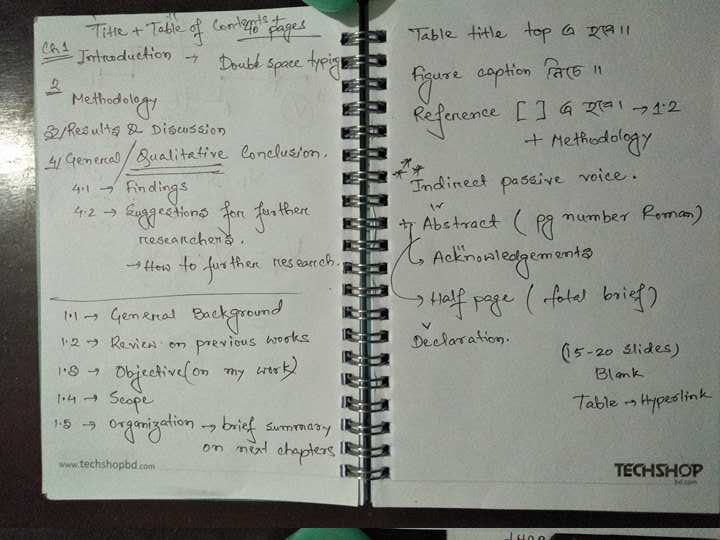 Title + Table of Contents + 40 pages
Ch 1 Introduction → Double space typing
2 Methodology
3/ Results & Discussion
4/ General / Qualitative Conclusion.
4.1 → Findings
4.2 → Suggestions for further
researchers.
→ How to further research.
1.1 → General Background
1.2 → Review on previous works
1.3 → Objective (on my work)
1.4 → Scope
1.5 → Organization → brief summary
on next chapters
www.techshopbd.com
Table title top এ হবে।।
Figure caption নিচে ।।
Reference [ ] এ হবে। → 1.2
+ Methodology
Indirect passive voice.
Abstract (pg number Roman)
Acknowledgements
→ Half page (total brief)
Declaration.
(15-20 slides)
Blank
Table → Hyperlink
TECHSHOP
bd.com